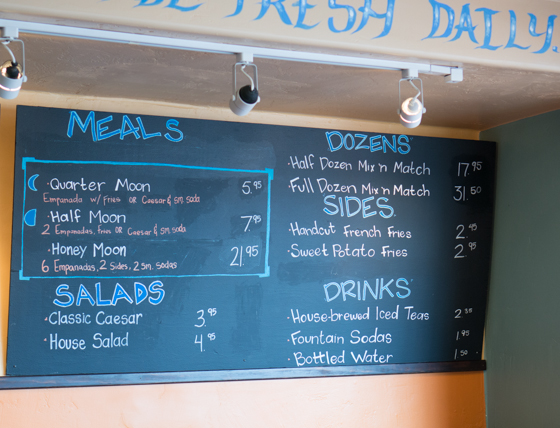 BE FRESH DAILY.
MEALS
Quarter Moon 5.95
Empanada w/fries OR Caesar & sm. soda
Half Moon 7.95
2 Empanadas, fries OR Caesar & sm. soda
Honey Moon 21.95
6 Empanadas, 2 Sides, 2 sm. sodas
SALADS
Classic Caesar 3.95
House Salad 4.95
DOZENS
Half Dozen Mix 'n Match 17.95
Full Dozen Mix 'n Match 31.50
SIDES
Handcut French Fries 2.95
Sweet Potato Fries 2.95
DRINKS
House-brewed Iced Teas
Fountain Sodas 1.95
Bottled Water 1.50